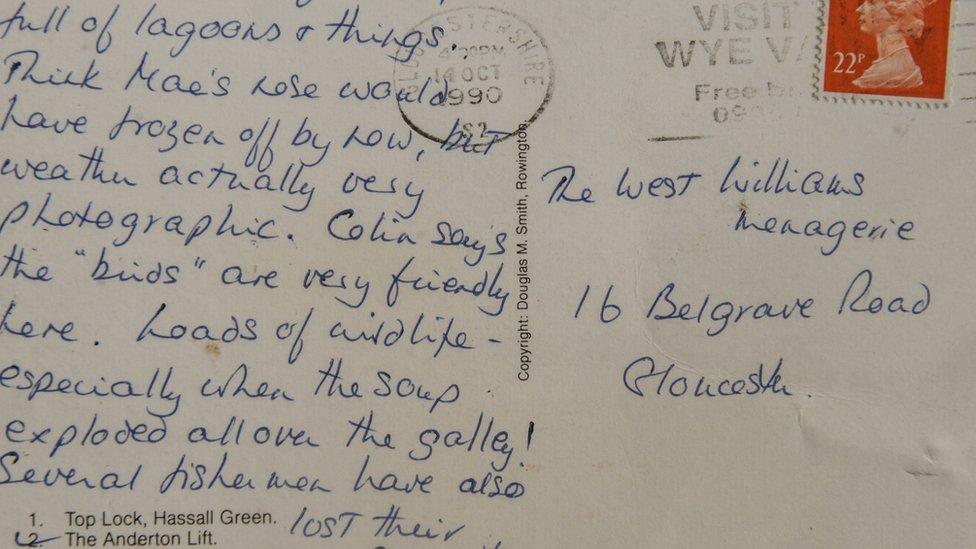 full of lagoons & things.
Think Mae's nose would
have frozen off by now, but
weather actually very
photographic. Colin says
the "birds" are very friendly
here. Loads of wildlife -
especially when the soup
exploded all over the galley!
Several fishermen have also
lost their
1. Top Lock, Hassall Green.
2. The Anderton Lift.
Copyright: Douglas M. Smith, Rowington.
GLOUCESTERSHIRE
4.30PM
14 OCT
1990
S2
VISIT
WYE
Free
22P
The West Williams
Menagerie
16 Belgrave Road
Gloucester.